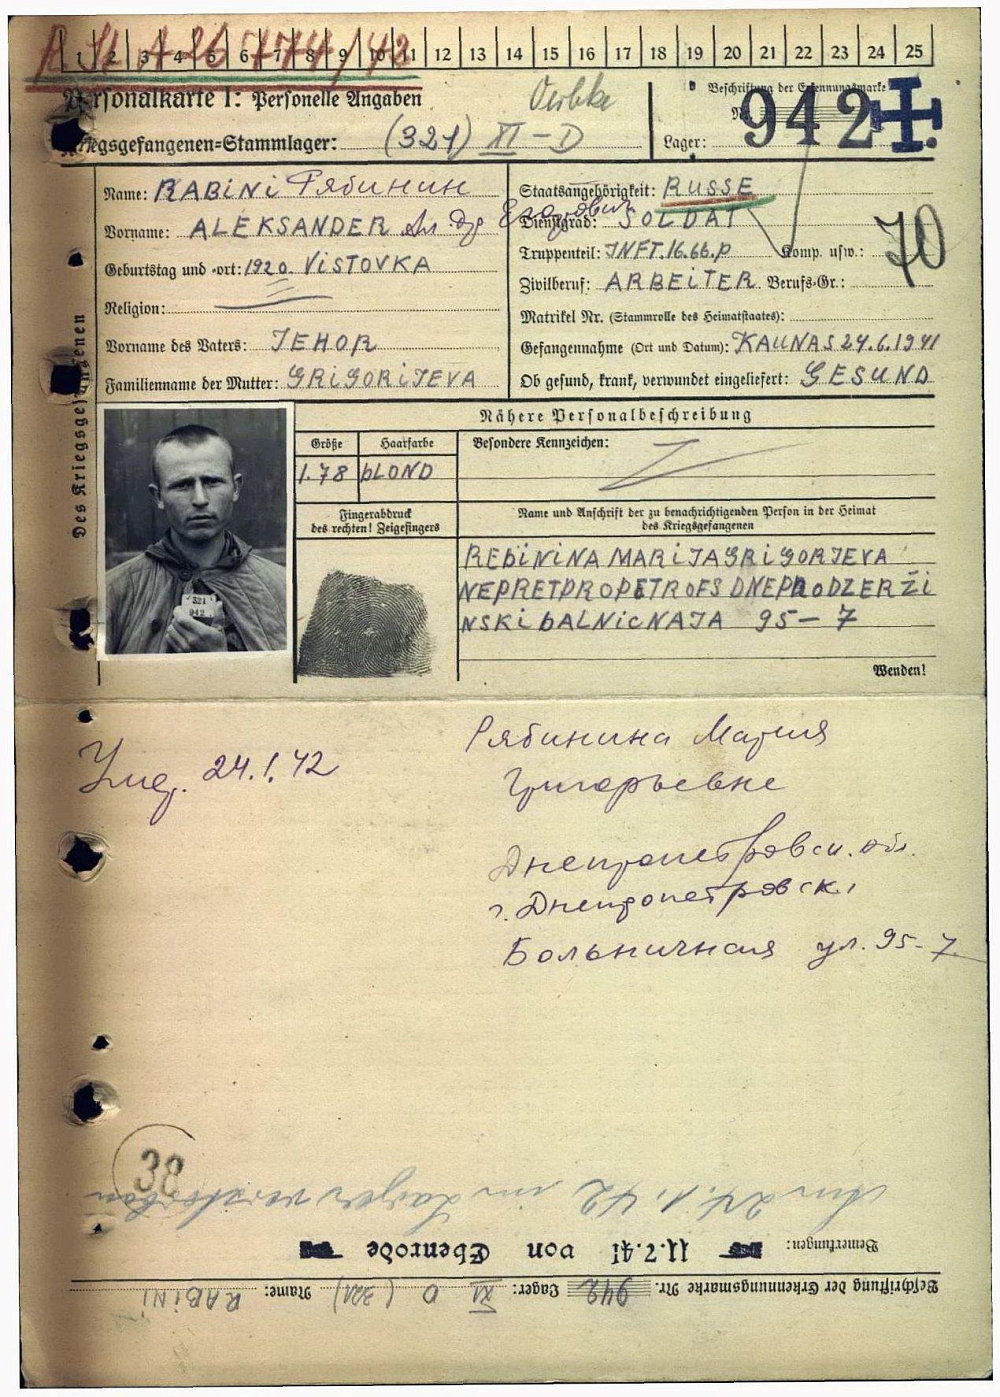 1 2 3 4 5 6 7 8 9 10 11 12 13 14 15 16 17 18 19 20 21 22 23 24 25
Personalkarte I: Personelle Angaben
Oerbke
Kriegsgefangenen-Stammlager: (321) XI-D
Beschriftung der Erkennungsmarke
Nr. 942
Lager:
Des Kriegsgefangenen
Name: RABINI Рябинин
Vorname: ALEKSANDER
Geburtstag und -ort: 1920. VISTOVKA
Religion:
Vorname des Vaters: JEHOR
Familienname der Mutter: GRIGORIJEVA
Staatsangehörigkeit: RUSSE
Dienstgrad: SOLDAT
Truppenteil: INFT.16.66.p Komp. usw.:
70
Zivilberuf: ARBEITER Berufs-Gr.:
Matrikel Nr. (Stammrolle des Heimatstaates):
Gefangennahme (Ort und Datum): KAUNAS 24.6.1941
Ob gesund, krank, verwundet eingeliefert: GESUND
Nähere Personalbeschreibung
Größe
1.78
Haarfarbe
bLOND
Besondere Kennzeichen:
Fingerabdruck
des rechten! Zeigefingers
Name und Anschrift der zu benachrichtigenden Person in der Heimat
des Kriegsgefangenen
REBININA MARIJA GRIGORJEVA
NEPRETDROPETROFS DNEPRODZERŽI
NSKI bALNICNAJA 95-7
321
942
Wenden!
Рябинина Мария
Григорьевне
Днепропетровск. обл.
г. Днепропетровск,
Больничная ул. 95-7.
24.1.42
38
Am 24.1.42 im Lager verstorben
Bemerkungen: 11.7.41 von Ebenrode
Beschriftung der Erkennungsmarke Nr. 942 Lager: XI D (321) Name: RABINI